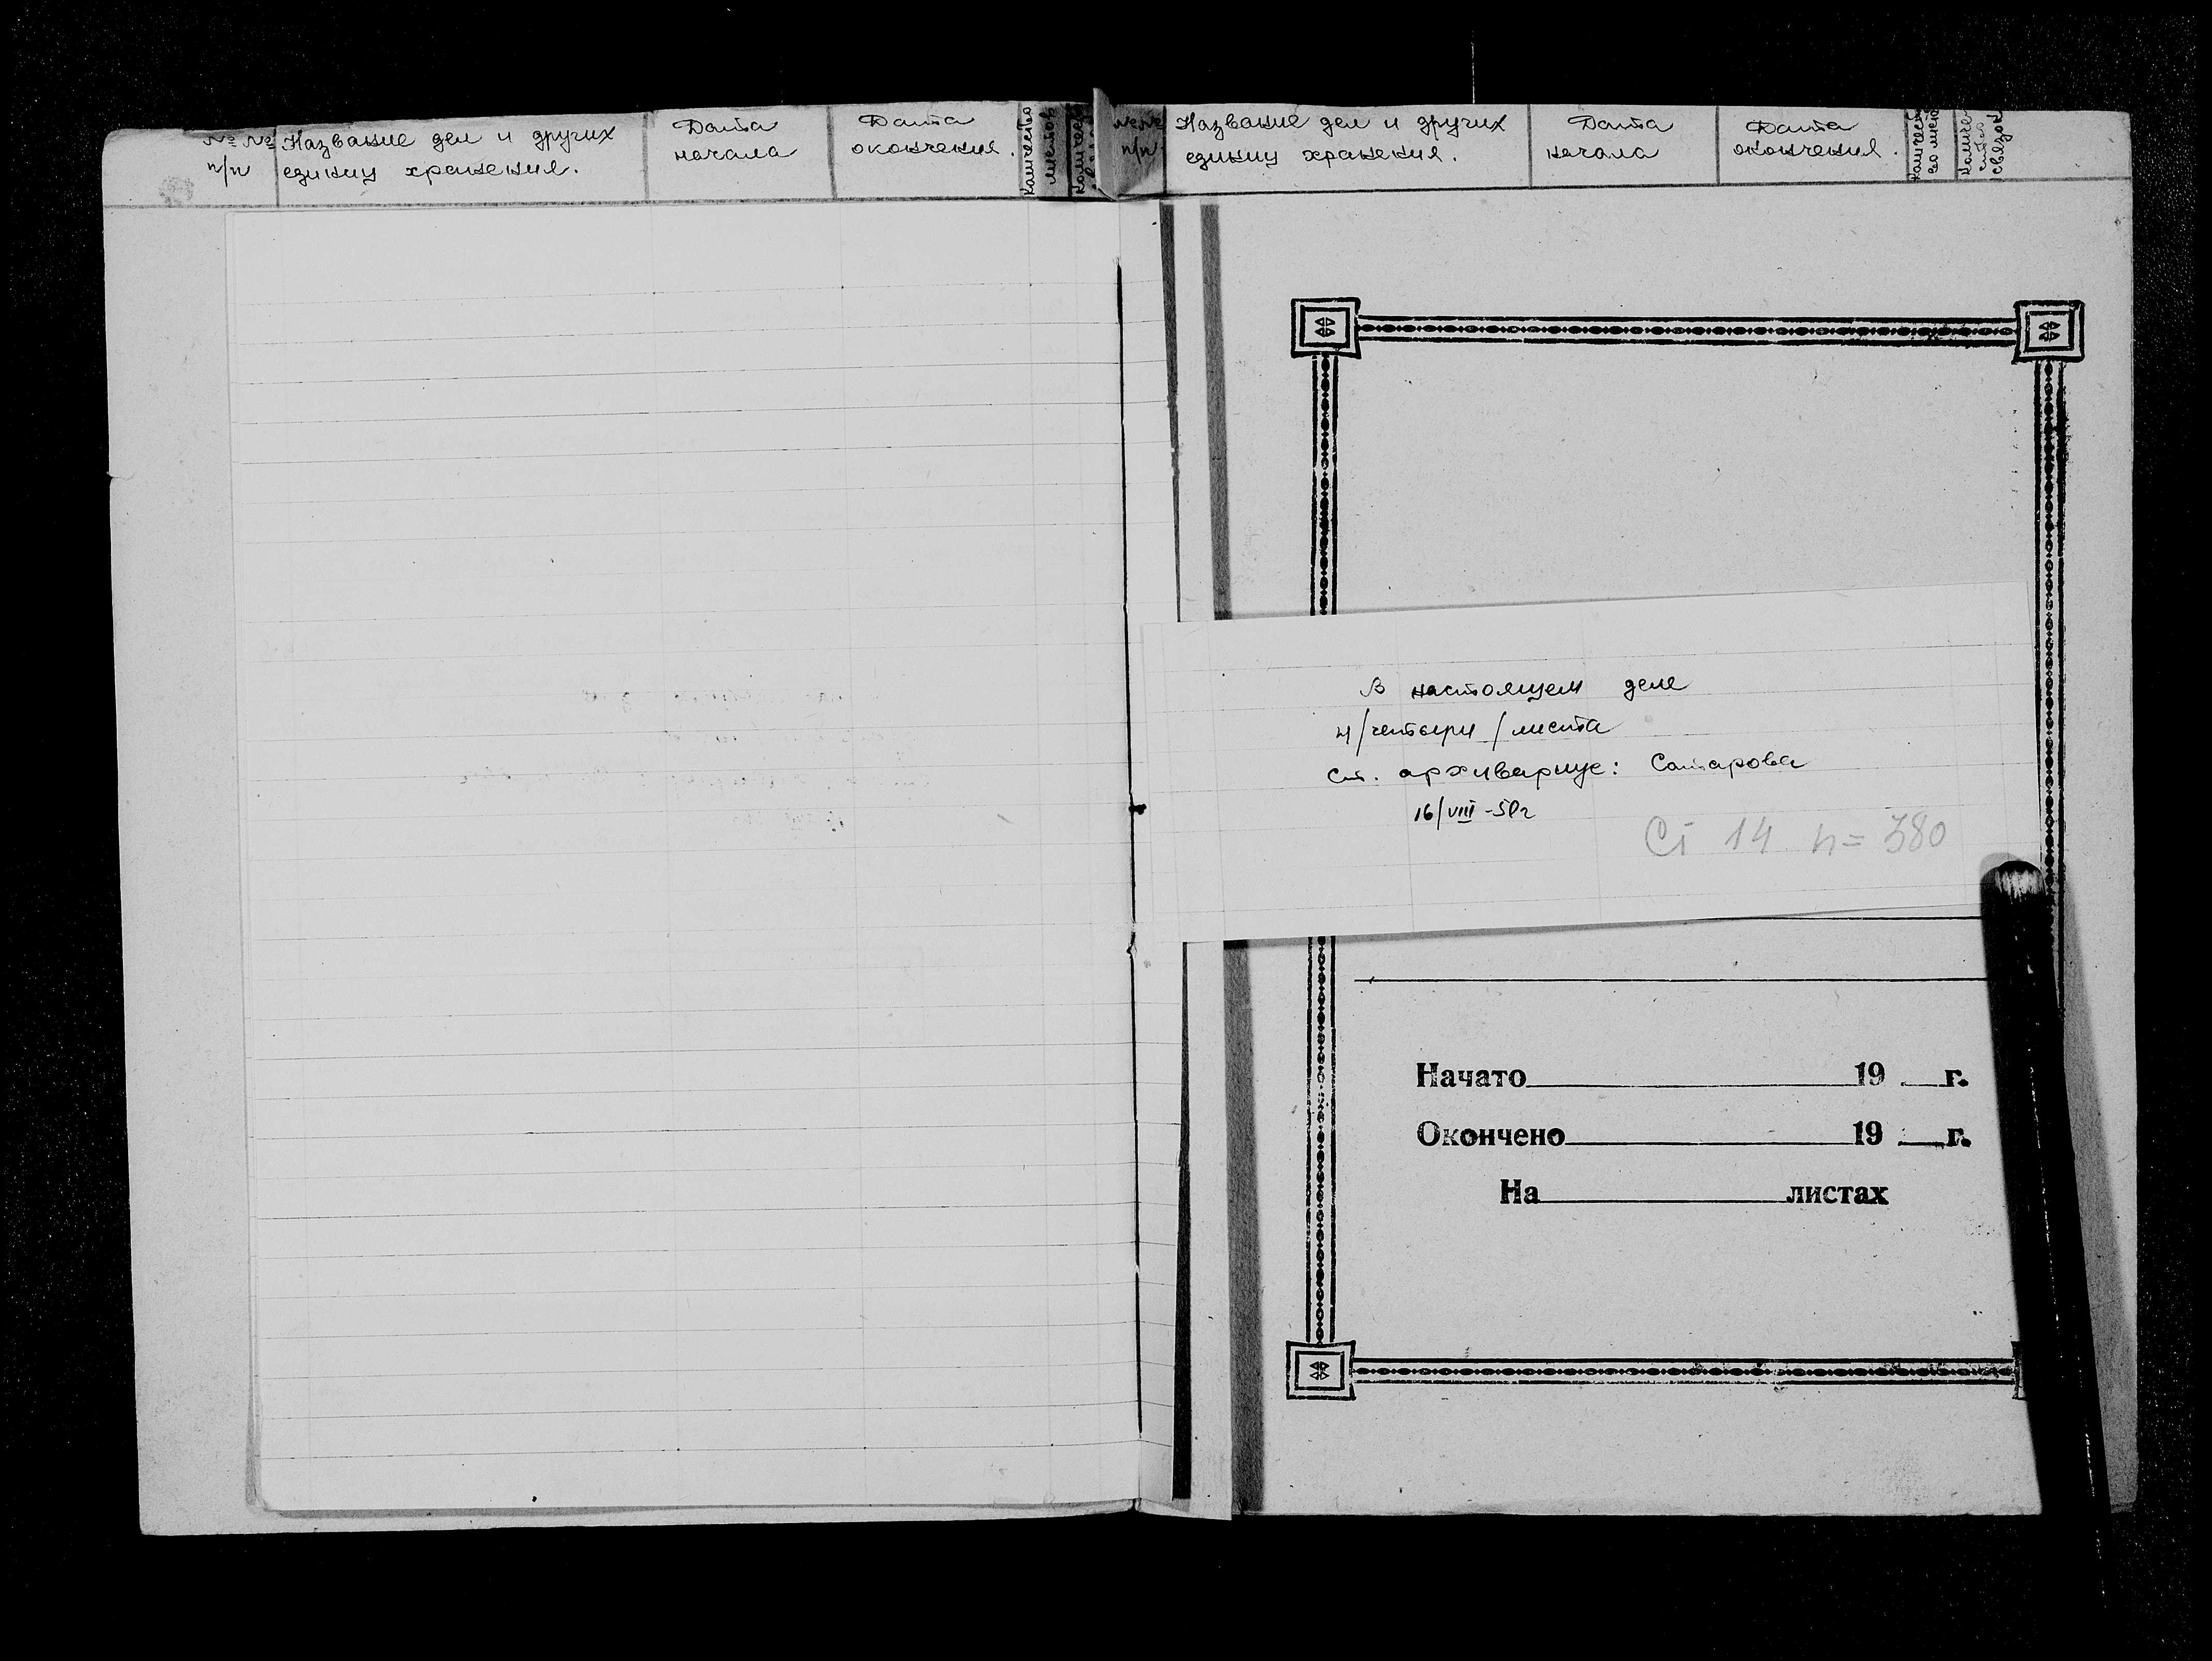 № №
п/п
Название дел и других
единиц хранения.
Дата
начала
Дата
окончения.
Количество
листов
№ №
п/п
Название дел и других
единиц хранения.
Дата
начала
Дата
окончения.
связок
В настоящем деле
4/четыри/листа
Ст. архивариус: Сатарова
16/VIII-50г
Ст 14 n=380
Начато 19 г.
Окончено 19 г.
На листах